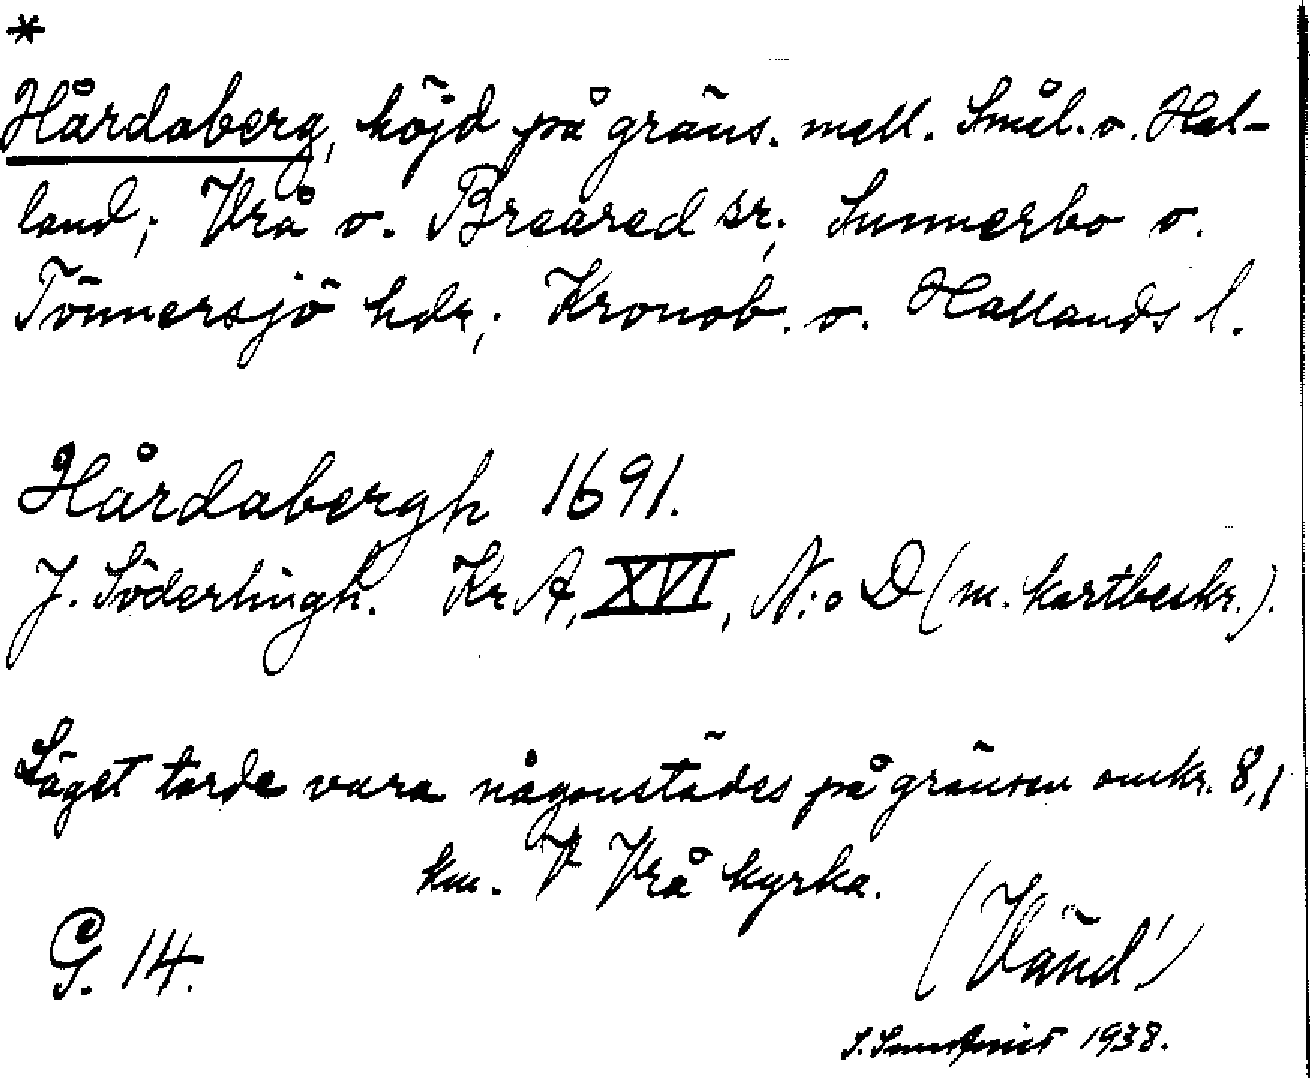 *
Hårdaberg, höjd på gräns. mell. Smål. o. Hal-
land; Vrå o. Breared sr; Sunnerbo o.
Tönnersjö hdr; Kronob. o. Hallands l.
Hårdabergh 1691.
J. Söderlingh. Kr. A, XVI, N:o D (m. kartbeskr.).
Läget torde vara någonstädes på gränsen omkr. 8,1
km. V Vrå kyrka.
G. 14.
(Vänd!)
1938.